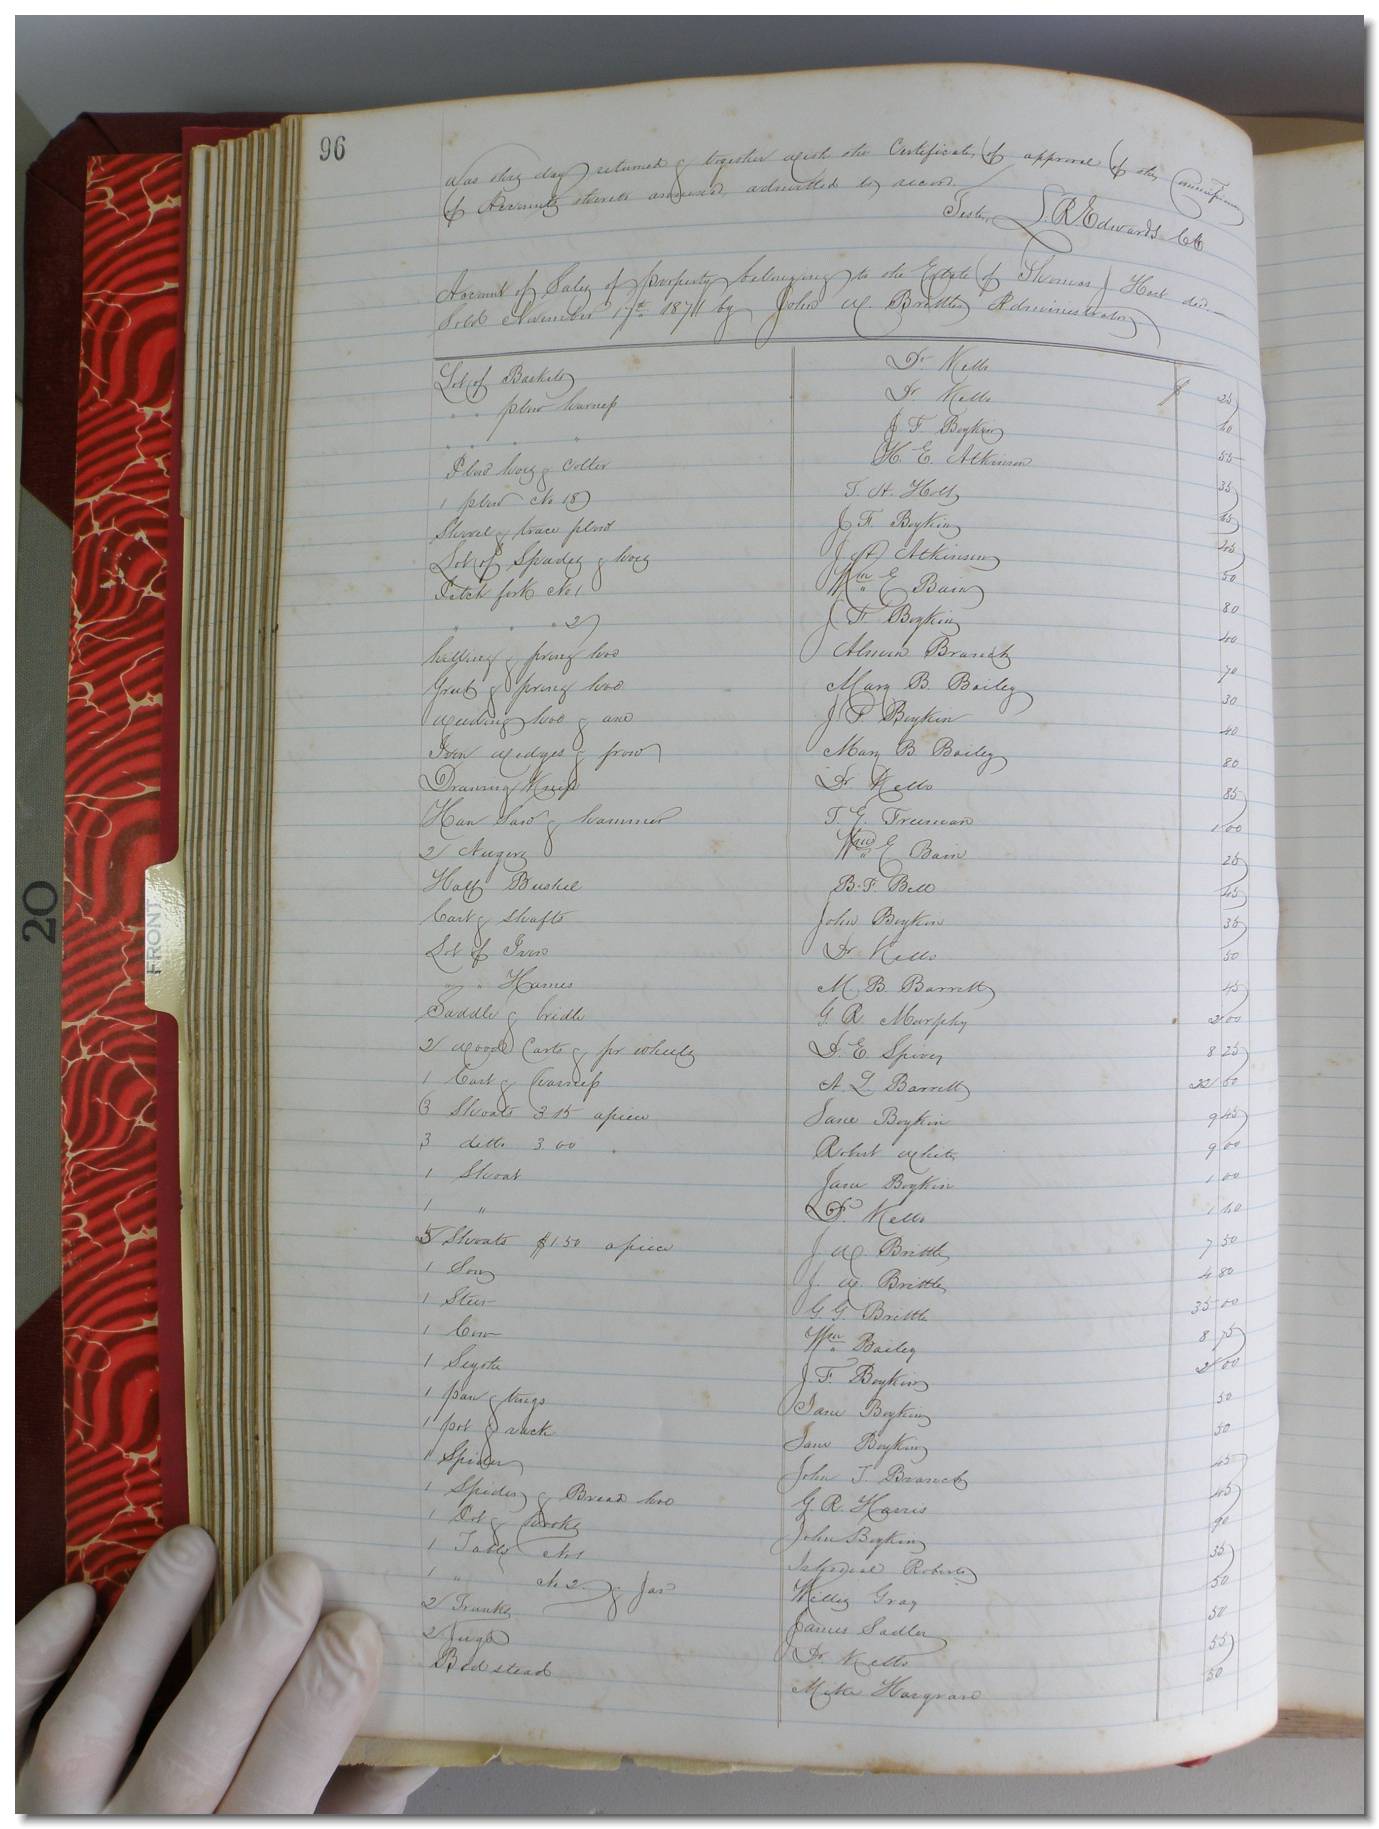 96
was this day returned & together with the Certificate of approval of the Commissioner
of Accounts thereto annexed, admitted to record.
Teste, L. R. Edwards Clk
Account of Sales of property belonging to the Estate of Thomas J Holt decd.
Sold November 17th 1871 by John W. Brittle Administrator
Lot of Baskets Dr Kello $ 25
" " plow harness Dr Kello 40
" " " " J. F. Boykin 55
Plow hoes & Colter H. E. Atkinson 35
1 plow No 18 T. H. Holt 45
Shovel & trace plow J F. Boykin 25
Lot of Spades & hoes J. A Atkinson 50
Pitch fork No 1 Wm E Bain 80
" " " 2 J F. Boykin 40
hilling & prong hoe Alman Branch 70
Grub & prong hoe Mary B. Bailey 30
Weeding hoe & axe J F. Boykin 40
Iron wedges & frow Mary B. Bailey 80
Drawing Knife Dr Kello 85
Han Saw & hammer T. E. Freeman 1 00
2 Augers Wm E Bain 25
Half Bushel B. F. Bell 45
Cart & Shafts John Boykin 35
Lot of Iron Dr Kello 50
" " Hames M. B. Barrett 45
Saddle & bridle G. R. Murphy 2 00
2 wood Carts & pr wheels D. E. Spivey 8 25
1 Cart & harness A. L. Barrett 22 50
3 Shoats 3 15 apiece Jane Boykin 9 45
3 ditto 3 00 Robert White 9 00
1 Shoat Jane Boykin 1 00
1 " Dr. Kello 1 40
5 Shoats $1.50 apiece J W Brittle 7 50
1 Sow J. W. Brittle 4 80
1 Steer G. G. Brittle 35 00
1 Cow Wm Bailey 8 75
1 Scythe J. F. Boykin 2 00
1 pan & tings Jane Boykin 50
1 pot & rack Jane Boykin 50
1 Spider John T. Branch 45
1 Spider & Bread hoe G. R. Harris 45
1 Pot & hooks John Boykin 90
1 Table No 1 Roberts 35
1 " No 2 & Jar Willis Gray 50
2 Trunks James Sadler 50
2 Jugs Dr Kello 55
Bed stead Mike Hargrave 50
FRONT
20